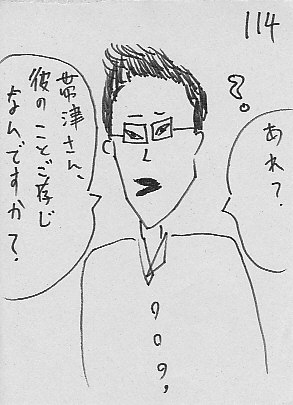 114
?
あれ?
帯津さん、
彼のことご存じ
なんですか?